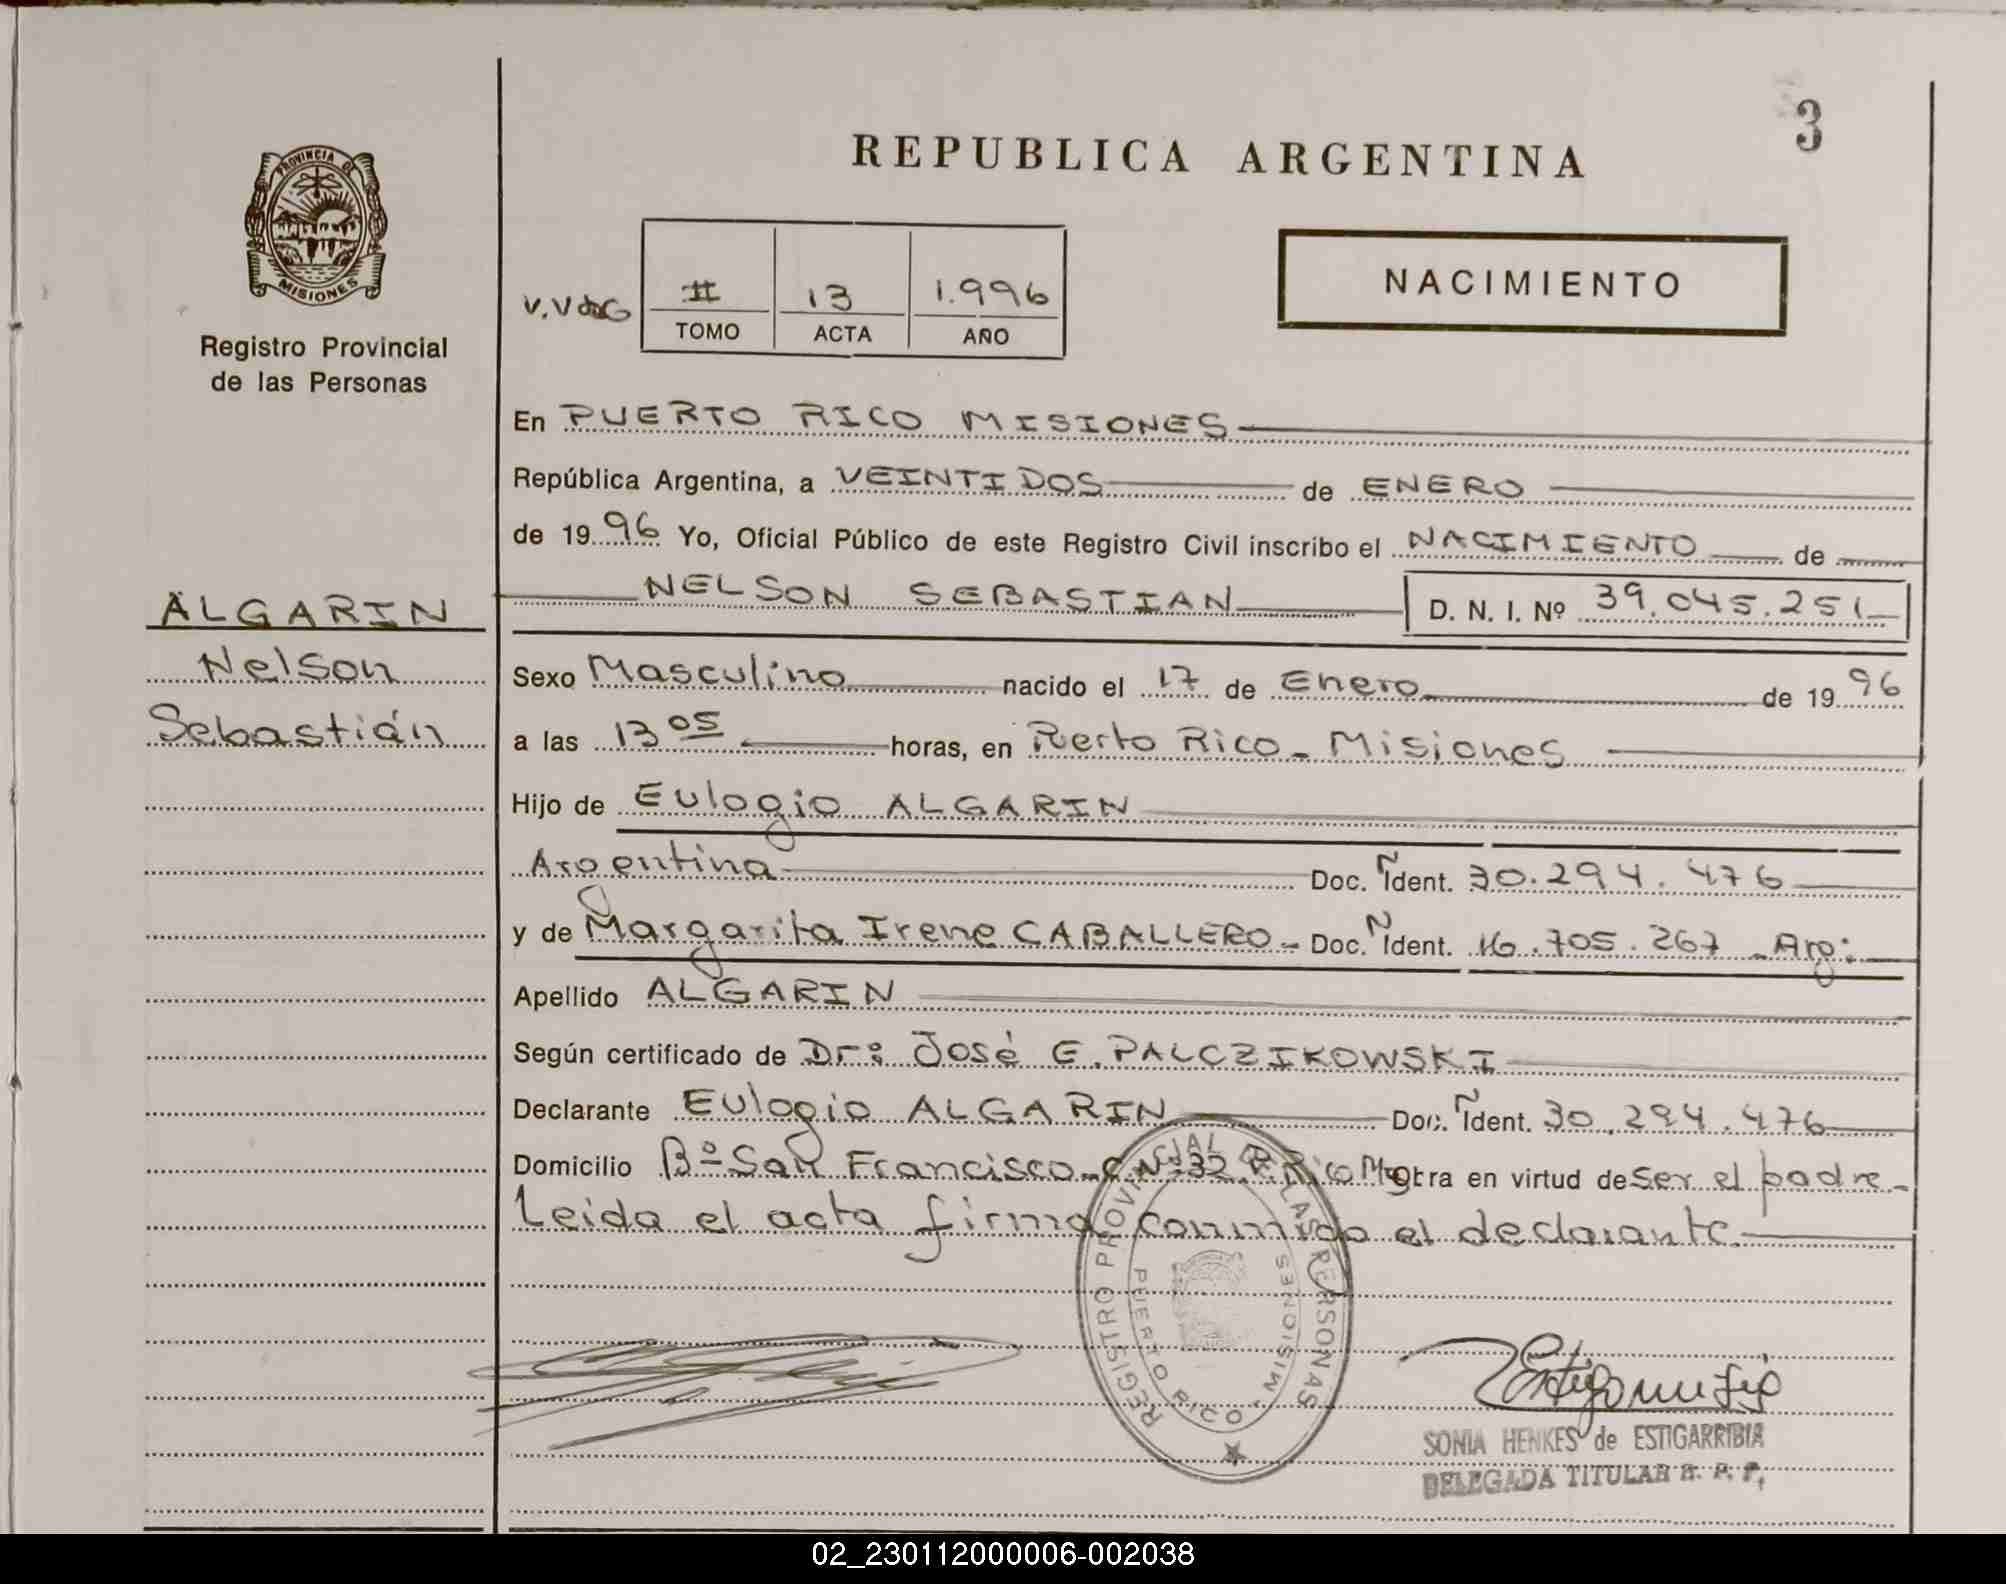 3
REPUBLICA ARGENTINA
PROVINCIA DE
MISIONES
Registro Provincial
de las Personas
NACIMIENTO
II 13 1.996
TOMO ACTA AÑO
En PUERTO RICO MISIONES
República Argentina, a VEINTIDOS de ENERO
de 19 96 Yo, Oficial Público de este Registro Civil inscribo el NACIMIENTO de
NELSON SEBASTIAN D. N. I. Nº 39.045.251
ALGARIN
Nelson
Sebastián
Sexo Masculino nacido el 17 de Enero de 19 96
a las 13 05 horas, en Puerto Rico - Misiones
Hijo de Eulogio ALGARIN
Argentina Doc. Ñ Ident. 30.294.476
y de Margarita Irene CABALLERO - Doc. Ñ Ident. 16.705.267 - Arg:
Apellido ALGARIN
Según certificado de Dr: José E. PALCZIKOWSKI
Declarante Eulogio ALGARIN Doc. Ñ Ident. 30.294.476
Domicilio Bº San Francisco - C Nº 32 P. Rico obra en virtud de ser el padre -
Leida el acta firma conmigo el declarante.
REGISTRO PROVINCIAL DE LAS PERSONAS
PUERTO RICO - MISIONES
SONIA HENKES de ESTIGARRIBIA
DELEGADA TITULAR R. P. P.
02_230112000006-002038